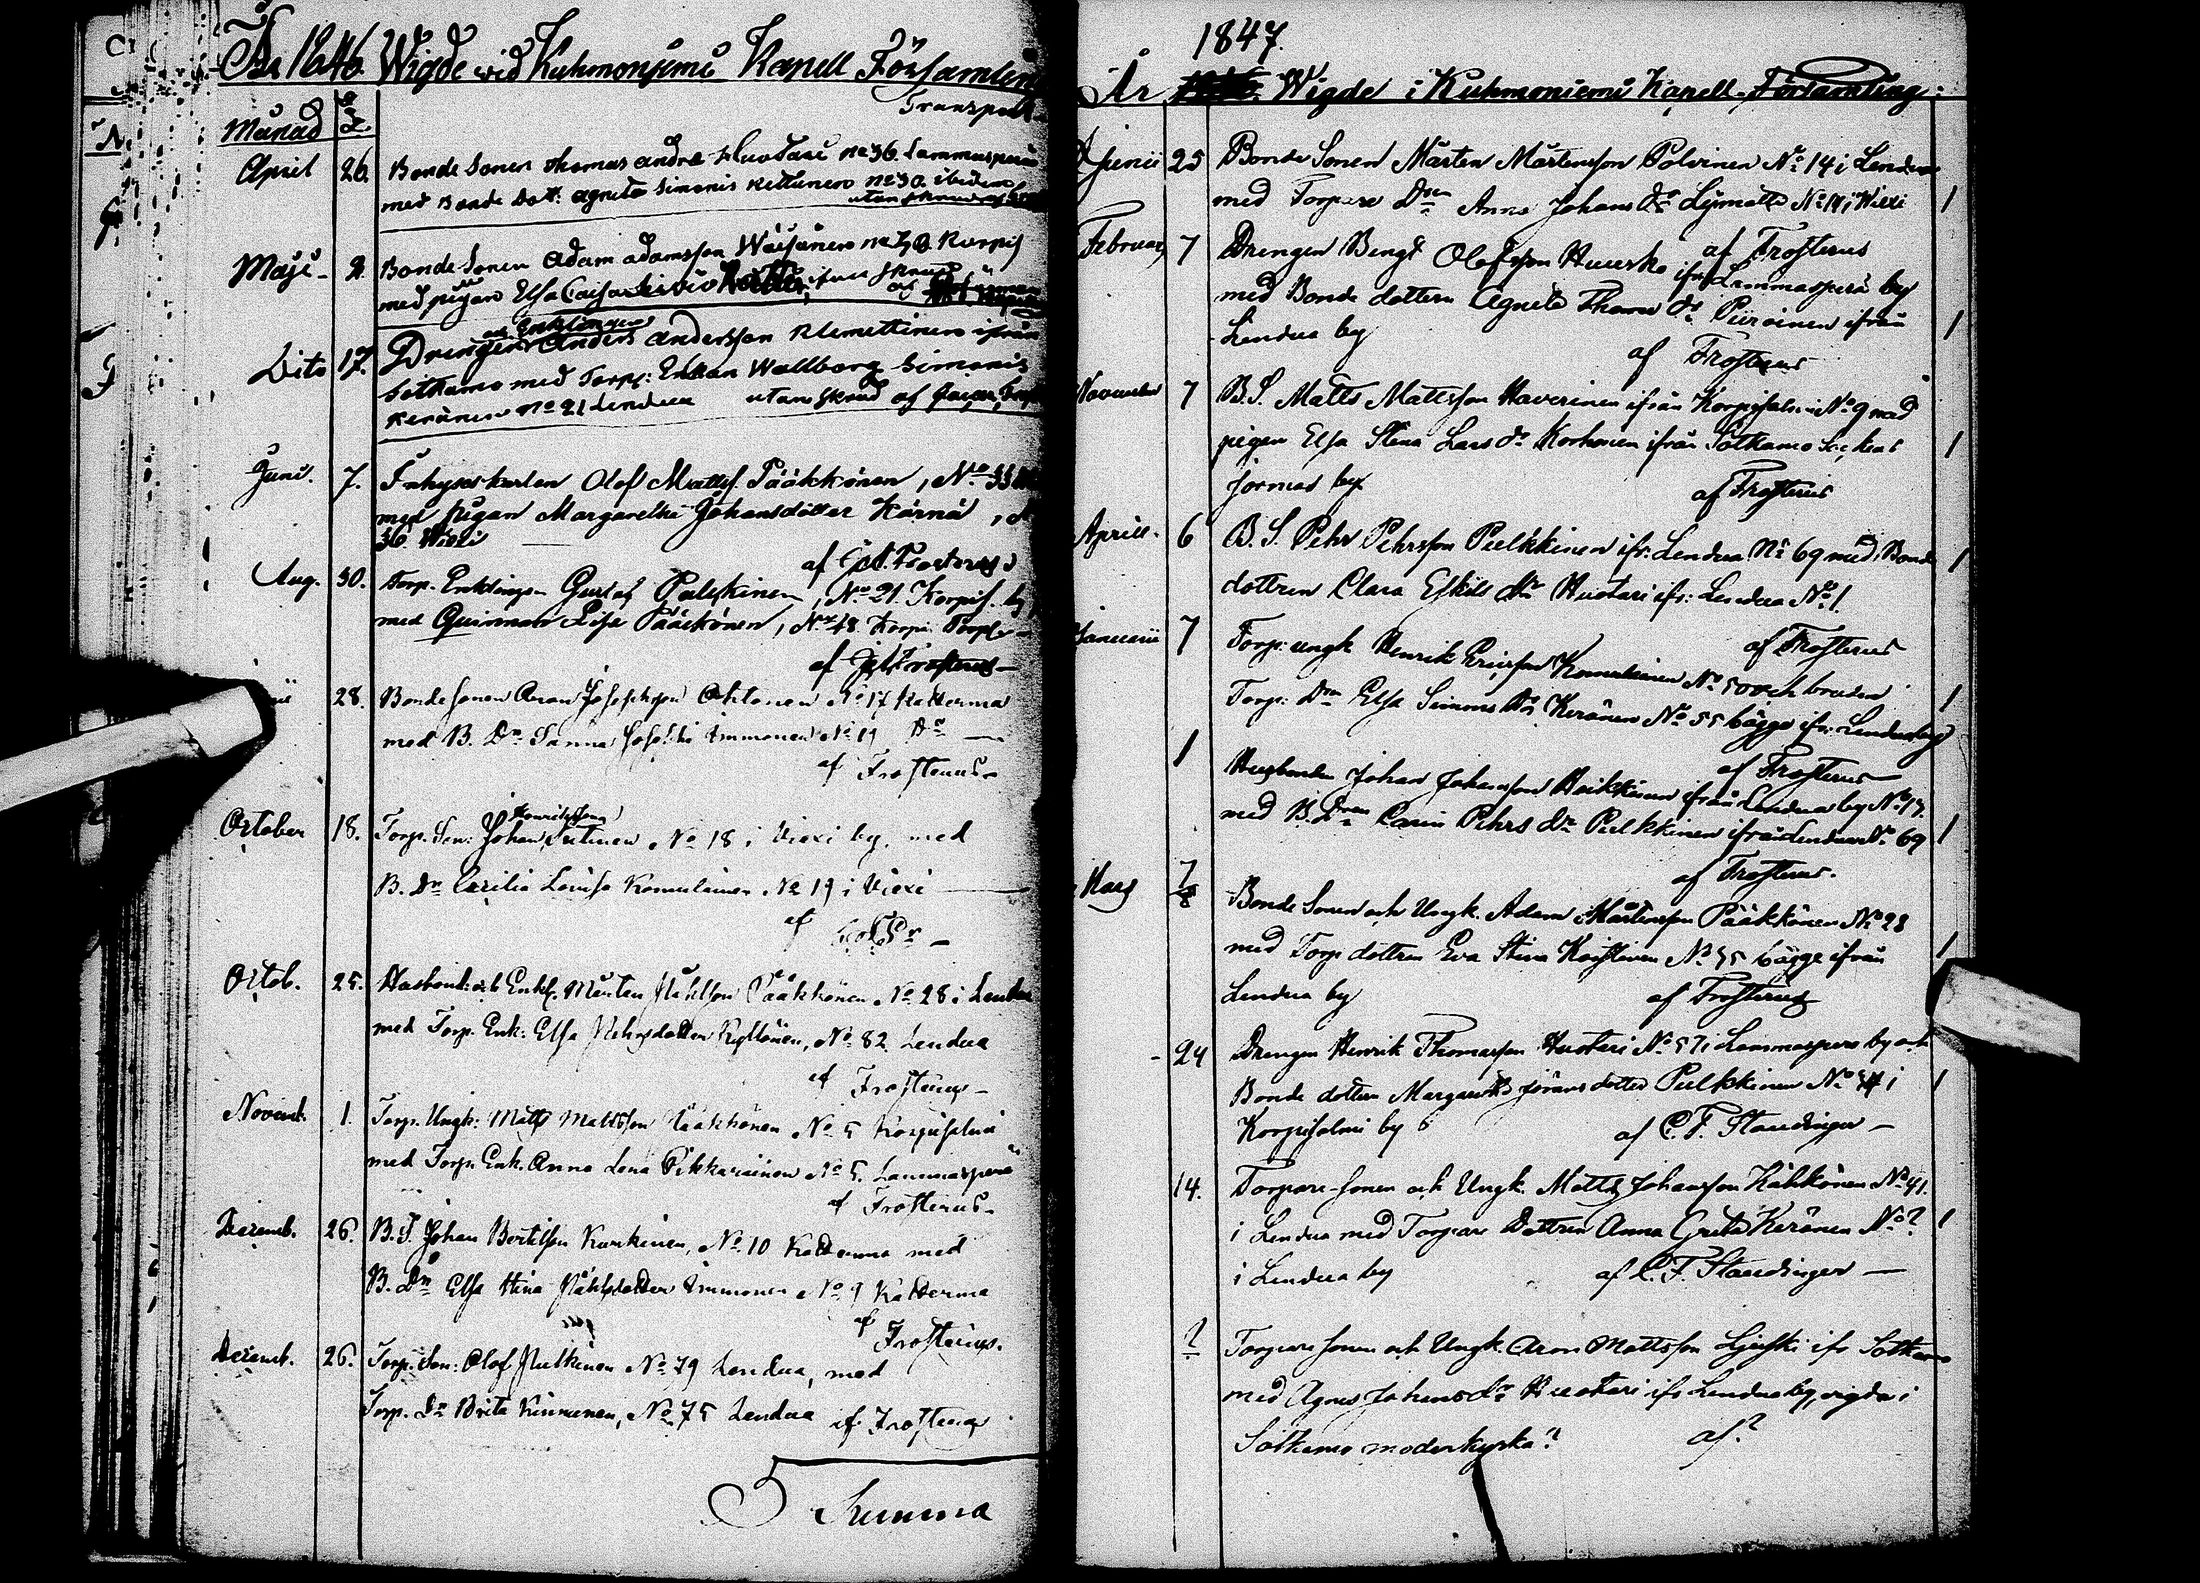 År 1846. Wigde wid Kuhmoniemi Kapell Församling
Transport
Månad
April 26. Bonde Sonen Thomas andrs Huotari no 36. Lammasperä
med Bonde Dott: Agneta Simonis Kettunen no 30. ibidem
utan skrud af
Maji 2. Bonde Sonen Adam Adamsson Wäisänen no 30. Korpis
med pigan Elsa Caisa
Dito 17. Drengen och Enklingen Anders Andersson Klemettinen ifrån
Sotkamo med Torp: Enkan Wallborg Simonis
Keränen no 21 Lendua utan skrud af
Juni. 7. Inhyseskarlen Olof Matts. Pääkkönen, No 33
med pigan Margaretha Johansdotter Kärnä,
36 Wiexi
af Frosterus
Aug. 30. Torp. Enklingen Gustaf Pulkkinen, No 21. Korpis. by
med Quinnan Lisa Pääkkönen, No 48. Korpi
af Frosterus
28. Bonde Sonen Aron Josephsson Ahtonen No 17 Katterma
med B. Dr Sanna Josephs Immonen No 19 Do
af Frosterus
October 18. Torp. Son: Johan Henriksson Tuttunen No 18 i Viexi by, med
B. Dr Cecilia Lovisa Komulainen No 19 i Viexi
af
Octob. 25. Husbond. och Enkl. Mårten Påhlsson Pääkkönen No 28 i Lendua
med Torp. Enk: Elsa Pehrsdotter Kyllönen, No 82. Lendua
af Frosterus
Novemb. 1. Torp. Ungk: Matts Mattsson Pääkkönen No 5 Korpisalmi
med Torp. Enk. Anna Lena Pikkarainen No 5. Lammasperä
af Frosterus
Decemb. 26. B. S. Johan Bertilsson Kurkinen, No 10 Katterma med
B. Dr Elsa Stina Påhlsdotter Immonen No 9 Katterma
af Frosterus.
Decemb. 26. Torp. Son: Olof Pulkkinen No 79 Lendua, med
Torp. Dr Brita Kinnunen, No 75 Lendua af Frosterus
Summa
1847.
År Wigde i Kuhmoniemi Kapell-Församling:
Junii 25 Bonde Sonen Mårten Mårtensson Polvinen No 14 i Lendua
med Torpare Dr Anna Johans dr No 14 i Wiexi 1
af Frosterus
Februar 7 Drengen Bengt Olofsson Huurko ifrån Lammasperä by
med Bonde dottern Agneta Thoms dr Piiroinen ifrån
Lendua by 1
af Frosterus
November 7 B.S. Matts Mattsson Haverinen ifrån Korpisalmi No 9 med
pigan Elsa Stina Lars dr Korhonen ifrån Sotkamo Sockens 1
Jormas by
af Frosterus
Aprill. 6 B. S. Pehr Pehrsson Pulkkinen ifr. Lendua No 69 med Bonde 1
dottren Clara Eskils dr Huotari ifr: Lendua No 1.
af Frosterus
Januarii 7 Torp: ungk Henrik Ericsson Komulainen No 50 och bruden
Torp: Dr Elsa Simons Dr Keränen No 55 bägge ifr. Lendua by 1
af Frosterus
1 Husbonden Johan Johansson Heikkinen ifrån Lendua by No 17.
med B. Dren Carin Pehrs dr Pulkkinen ifrån Lendua No 69 1
af Frosterus.
Mars 7/8 Bonde Sonen och Ungk. Adam Mårtensson Pääkkönen No 28
med Torp dottren Eva Stina Koistinen No 55 bägge ifrån 1
Lendua by af Frosterus
24 Drengen Henrik Thomasson Huotari No 57 i Lammasperä by och
Bonde dottern Margareta Jöransdotter Pulkkinen No i 1
Korpisalmi by 6 af C. F. Staudinger
14. Torpare-sonen och Ungk. Matts Johansson Kähkönen No 41.
i Lendua med Torpare Dottren Anna Greta Keränen No ? 1
i Lendua by af C. F. Staudinger
? Torpare sonen och Ungk. Aron Mattsson ifr Sotkamo
med Agnes Johans dr Huotari ifr Lendua by, vigda i
Sotkamo moderkyrka? af ?